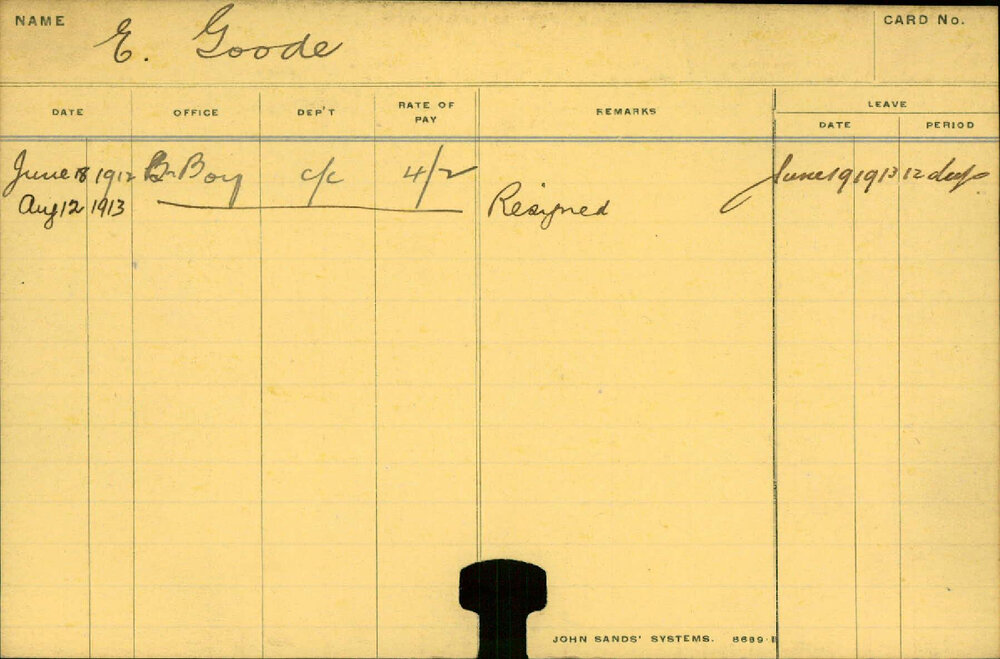 NAME E. Goode CARD No.
DATE OFFICE DEP'T RATE OF PAY REMARKS LEAVE
DATE PERIOD
June 18 1912 Br Boy c/c 4/2 June 19 1913 12 days
Aug 12 1913 Resigned
JOHN SANDS' SYSTEMS.